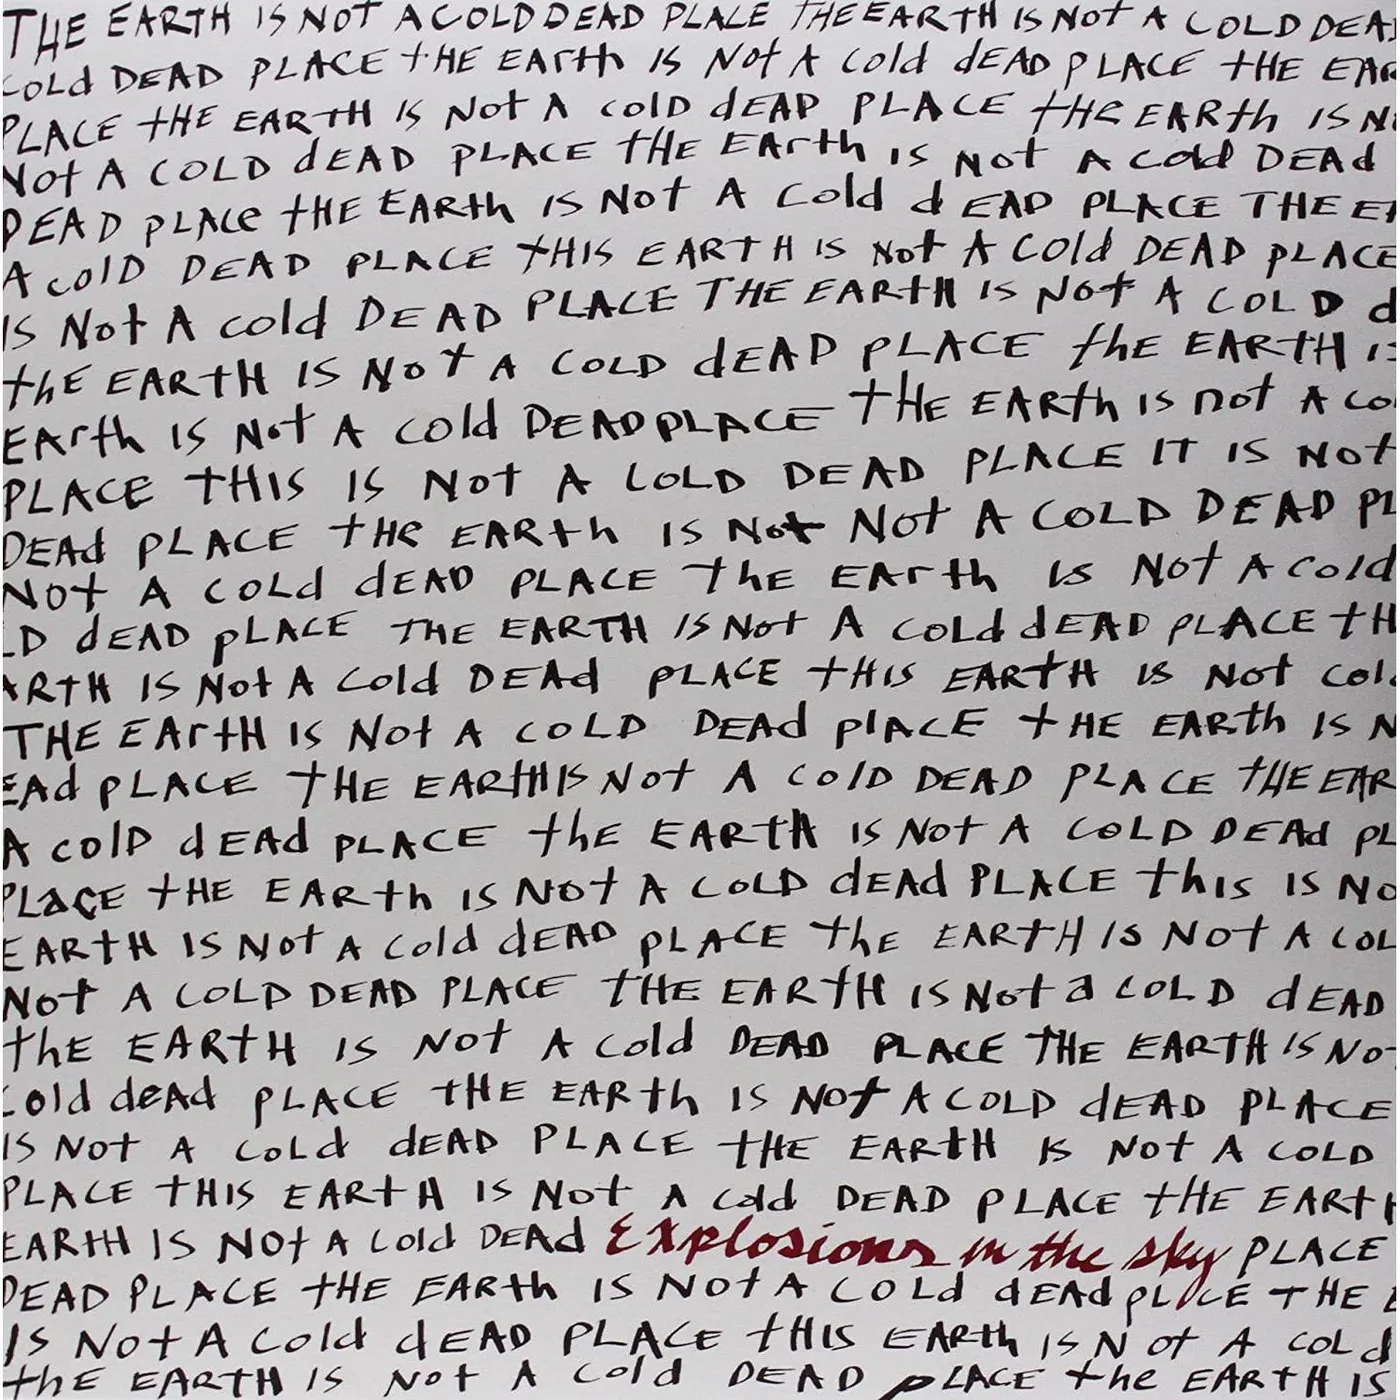 THE EARTH IS NOT A COLD DEAD PLACE THE EARTH IS NOT A COLD DEA
COLd DEAD PLACE tHE EARth IS NOt A cold dEAD PLACE tHE EAR
PLACE tHE EARtH IS Not A colD dEAD PLACE tHe EARth IS N
Not A COLD dEAD PLACE tHE EArth is Not A cold DEAd
DEAD pLACe tHE EARth IS Not A cold dEAD PLACE THE E
A colD DEAD PLACE tHIS EARTH IS Not A Cold DEAD pLACE
IS Not A cold DEAD PLACE THE EARtH IS Not A COLD d
thE EARtH IS Not A COLD dEAD PLACE thE EARtH I
EArth IS Not A cold DEADPLACE tHE EARth IS not A co
PLACE tHIS IS Not A COLD DEAD PLACE IT IS Not
DEAd PLACE tHe EARth IS Not Not A COLD DEAD PL
Not A COLd dEAD PLACE thE EArth Is Not A cold
LD dEAD pLACE THE EARTH IS Not A COLd dEAD PLACE tH
ARtH IS Not A Cold DEAd PLACE tHIS EARtH IS Not Col
THE EArtH IS Not A COLD DEAd plACE tHE EARth IS N
EAd pLACE tHE EARtH IS Not A colD DEAD PLACE tHE EAR
A colD dEAd PLACE thE EARtH IS Not A COLD DEAd PL
PLaCE tHE EARth IS Not A COLD dEAd PLACE thIs IS No
EARtH IS Not A Cold dEAD pLACE thE EARtH IS Not A COL
Not A COLD DEAD PLACE tHE EARtH IS Not a COLD dEAD
thE EARtH IS Not A Cold DEAD PLACE THE EARtH IS No
Cold deAd pLACE tHE EARth IS NOt A COLD dEAD PLACE
IS Not A COLd dEAD PLACE tHE EARtH IS Not A COLD
PLACE tHIS EARtH IS Not A cold DEAD PLACE tHE EARt
EARtH IS NOt A Cold DEAd Explosions in the sky PLACE
DEAD PLACE tHE EARth IS NOt A COLd dEAd pLACE tHE E
IS Not A Cold dEAD PLACE tHIS EARth IS Not A COLd
thE EARTH IS Not A Cold DEAD pLACE the EARtH IS